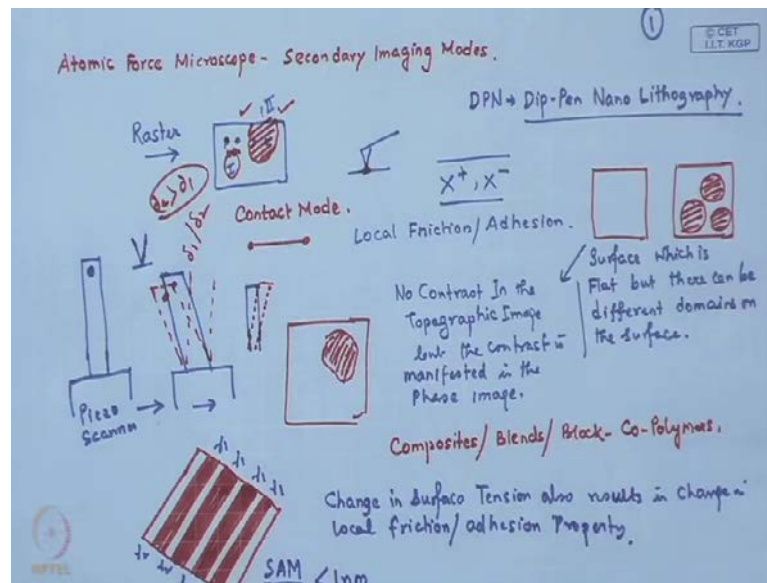 1
© CET
I.I.T. KGP
Atomic Force Microscope - Secondary Imaging Modes.
DPN → Dip-Pen Nano Lithography.
Raster
I
II
X+, X-
Contact Mode.
Local Friction/Adhesion.
Surface which is
Flat but there can be
different domains on
the surface.
No Contrast In the
Topographic Image
but the contrast is
manifested in the
Phase image.
Piezo
Scanner
Composites/ Blends/ Block-Co-Polymers.
Change in Surface Tension also results in change in
Local friction/adhesion Property.
SAM < 1nm
NPTEL